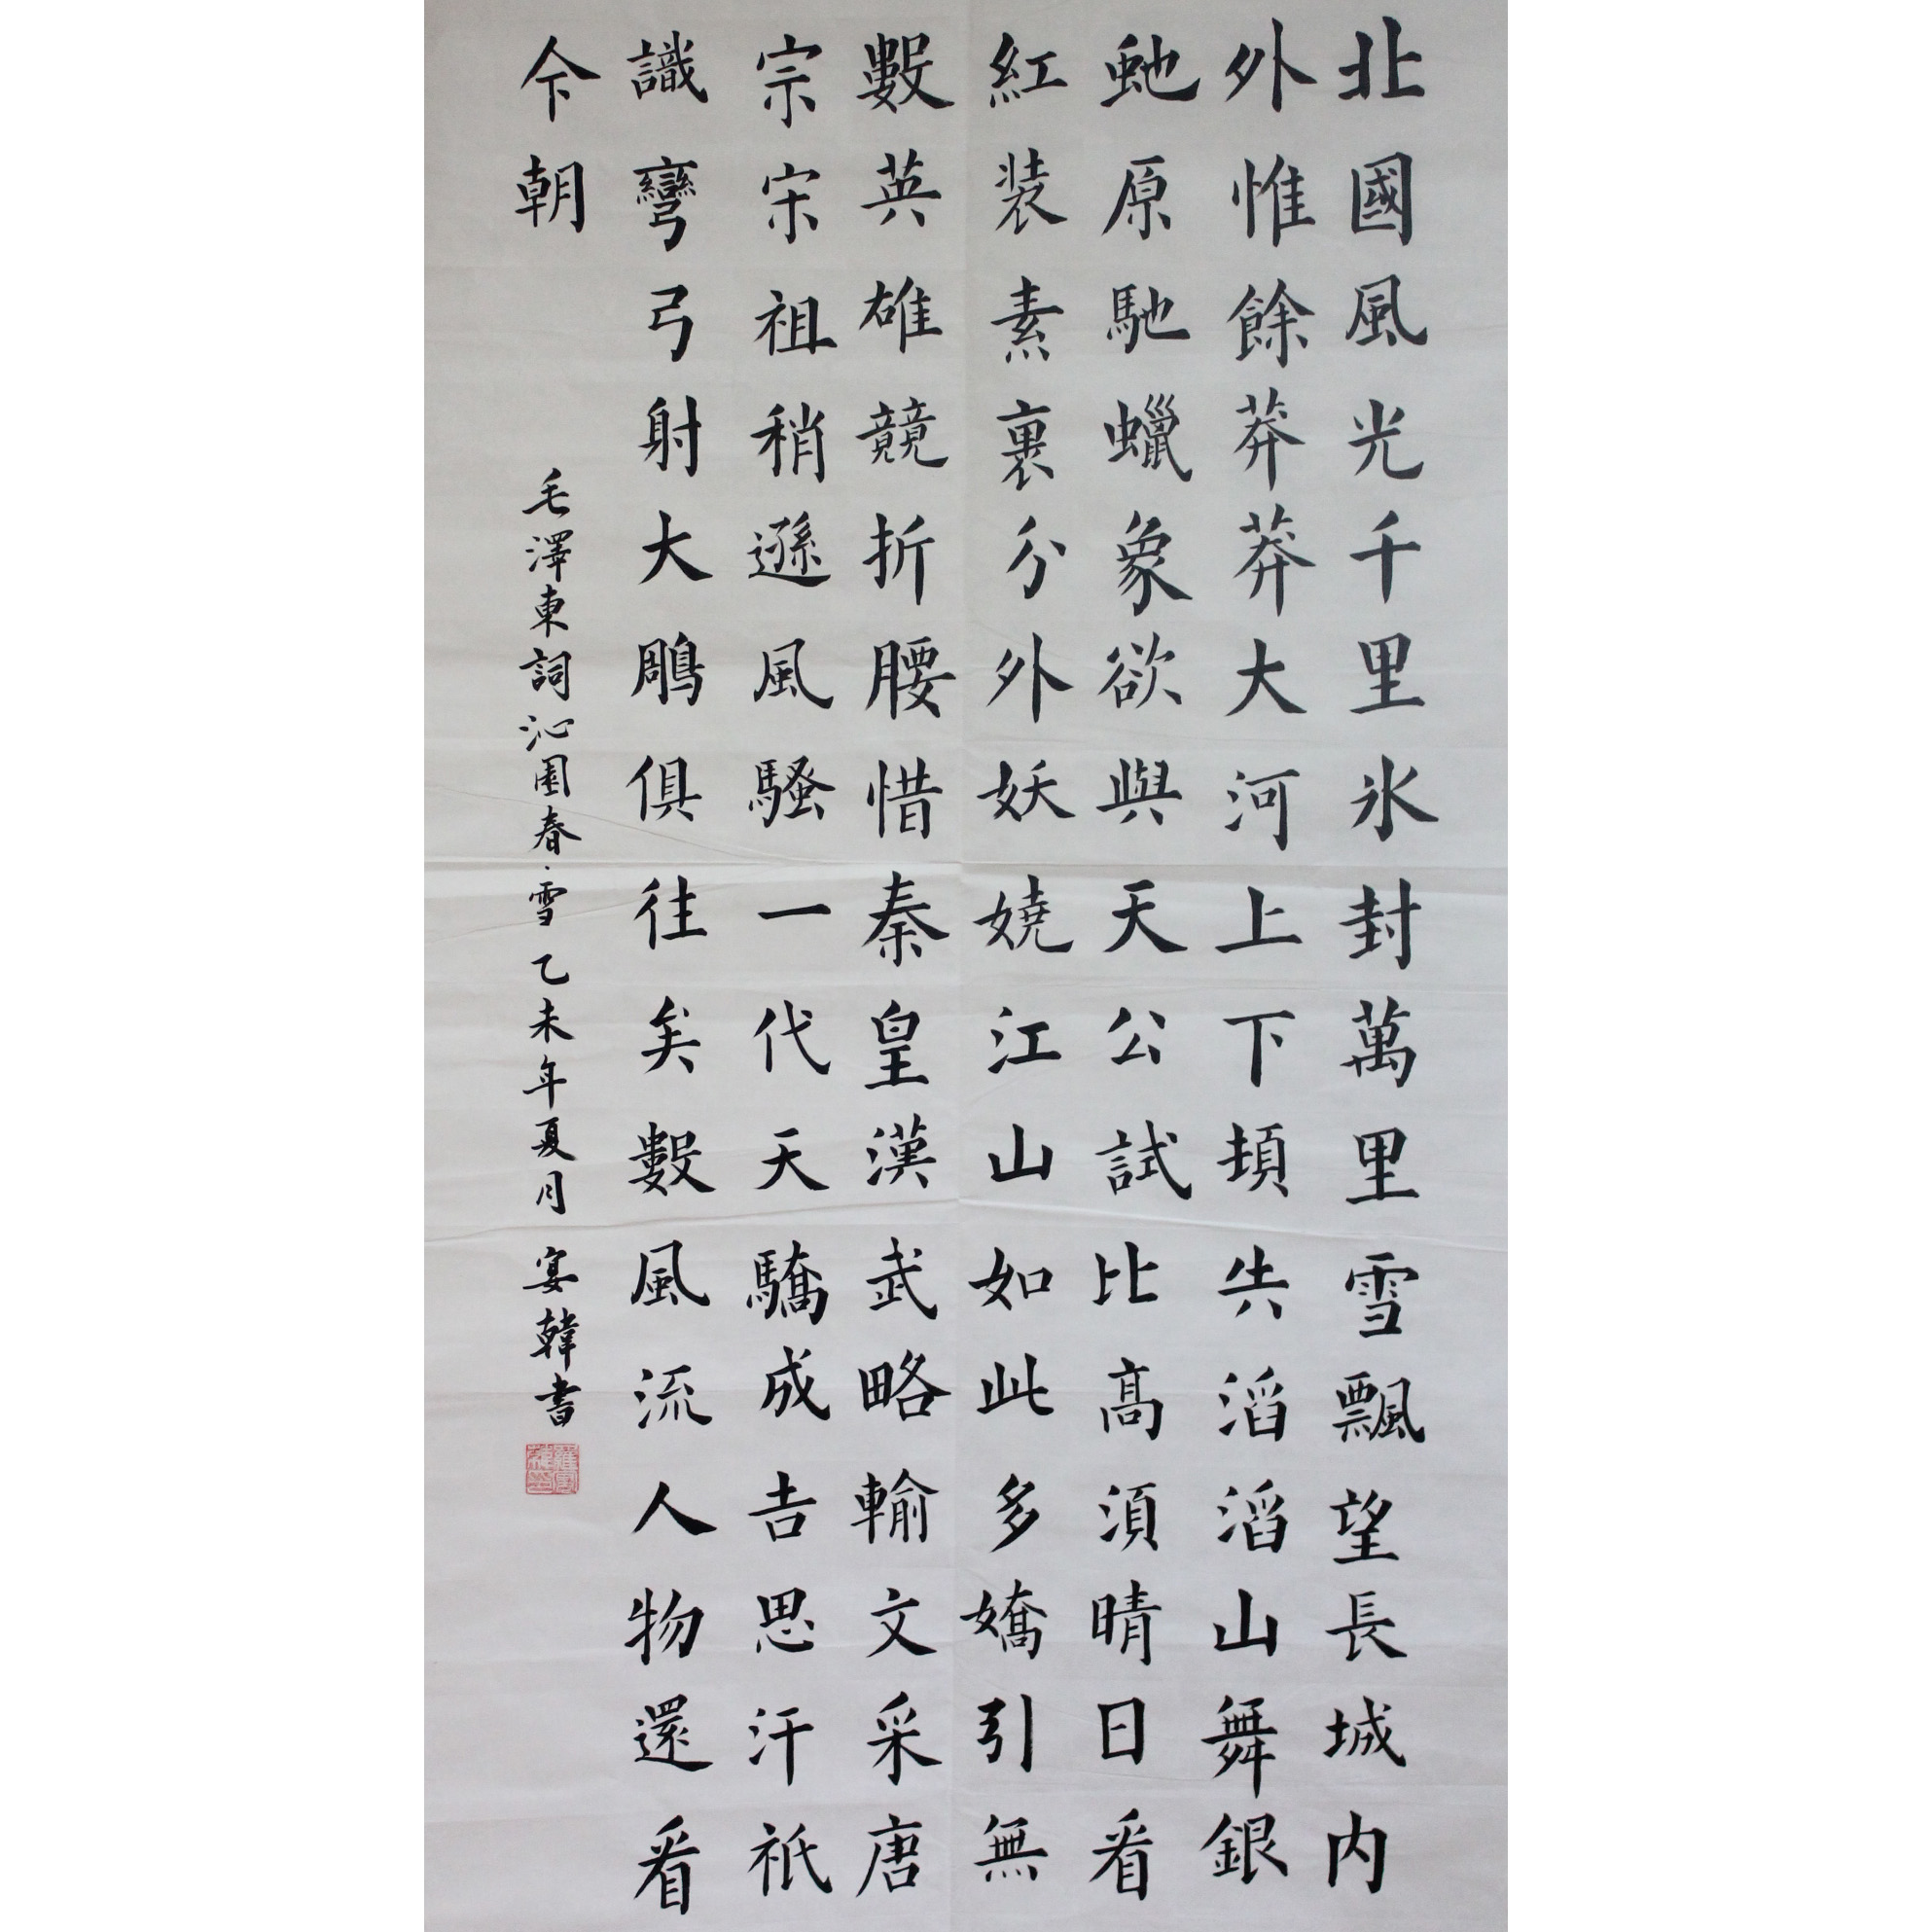 北國風光千里氷封萬里雪飄望長城内
外惟餘莽莽大河上下頓失滔滔山舞銀
虵原馳蠟象欲與天公試比髙湏晴日看
紅装素裹分外妖嬈江山如此多嬌引無
數英雄競折腰惜秦皇漢武略輸文采唐
宗宋祖稍遜風騷一代天驕成吉思汗祇
識彎弓射大鵰俱往矣數風流人物還看
今朝
毛澤東詞沁園春·雪 乙未年夏月 宴韓書